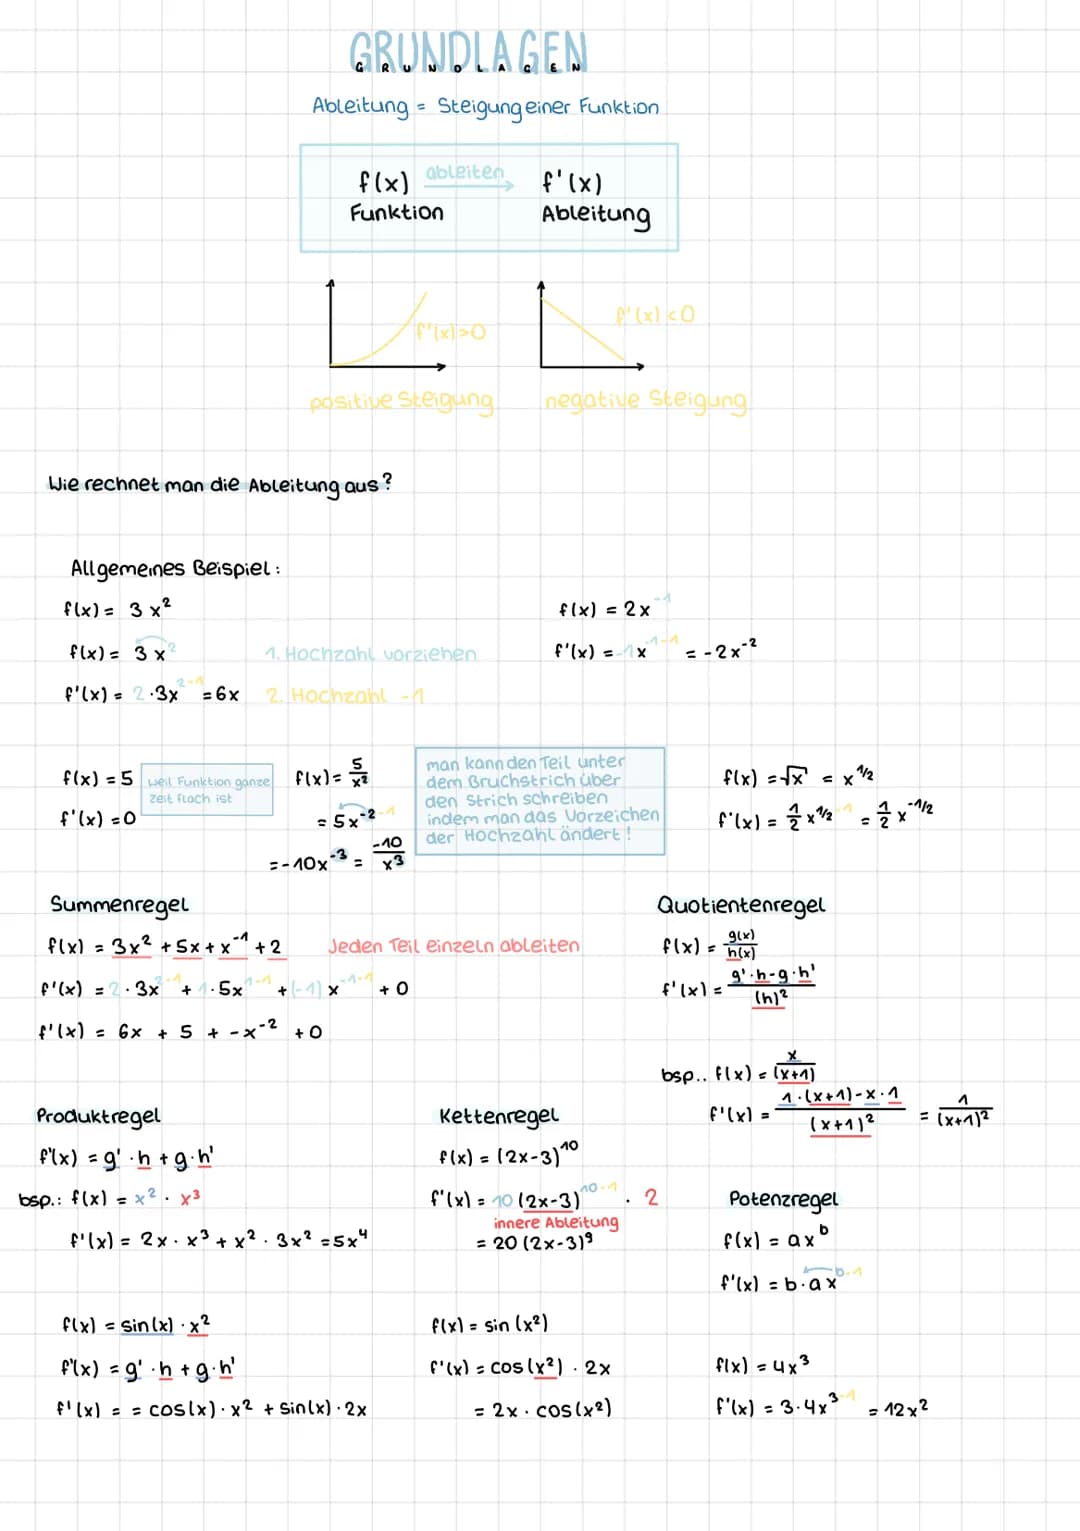 GRUNDLAGEN
Ableitung = Steigung einer Funktion
f(x) ableiten f'(x)
Funktion Ableitung
f'(x)>0
f'(x)<0
positive Steigung negative Steigung
Wie rechnet man die Ableitung aus?
Allgemeines Beispiel:
f(x) = 3x²
f(x) = 3x² 1. Hochzahl vorziehen
f'(x) = 2·3x²⁻¹ = 6x 2. Hochzahl -1
f(x) = 2x⁻¹
f'(x) = -1x⁻¹⁻¹ = -2x⁻²
f(x) = 5
f'(x) = 0
weil Funktion ganze
zeit flach ist
f(x) = 5/x²
= 5x⁻²⁻¹
= -10x⁻³ = -10/x³
man kann den Teil unter
dem Bruchstrich über
den Strich schreiben
indem man das Vorzeichen
der Hochzahl ändert!
f(x) = √x = x^1/2
f'(x) = 1/2 x^1/2 -1 = 1/2 x^-1/2
Summenregel
f(x) = 3x² + 5x + x⁻¹ + 2 Jeden Teil einzeln ableiten
f'(x) = 2·3x²⁻¹ + 1·5x¹⁻¹ + (-1)x⁻¹⁻¹ + 0
f'(x) = 6x + 5 + -x⁻² + 0
Quotientenregel
f(x) = g(x)/h(x)
f'(x) = g'·h-g·h'/(h)²
bsp.. f(x) = x/(x+1)
f'(x) = 1·(x+1)-x·1/(x+1)² = 1/(x+1)²
Produktregel
f'(x) = g'·h + g·h'
bsp.: f(x) = x² · x³
f'(x) = 2x · x³ + x² · 3x² = 5x⁴
f(x) = sin(x) · x²
f'(x) = g'·h + g·h'
f'(x) = = cos(x) · x² + sin(x) · 2x
Kettenregel
f(x) = (2x-3)¹⁰
f'(x) = 10 (2x-3)¹⁰⁻¹ · 2
innere Ableitung
= 20(2x-3)⁹
f(x) = sin(x²)
f'(x) = cos(x²) · 2x
= 2x · cos(x²)
Potenzregel
f(x) = ax^b
f'(x) = b·ax^b-1
f(x) = 4x³
f'(x) = 3·4x³⁻¹ = 12x²